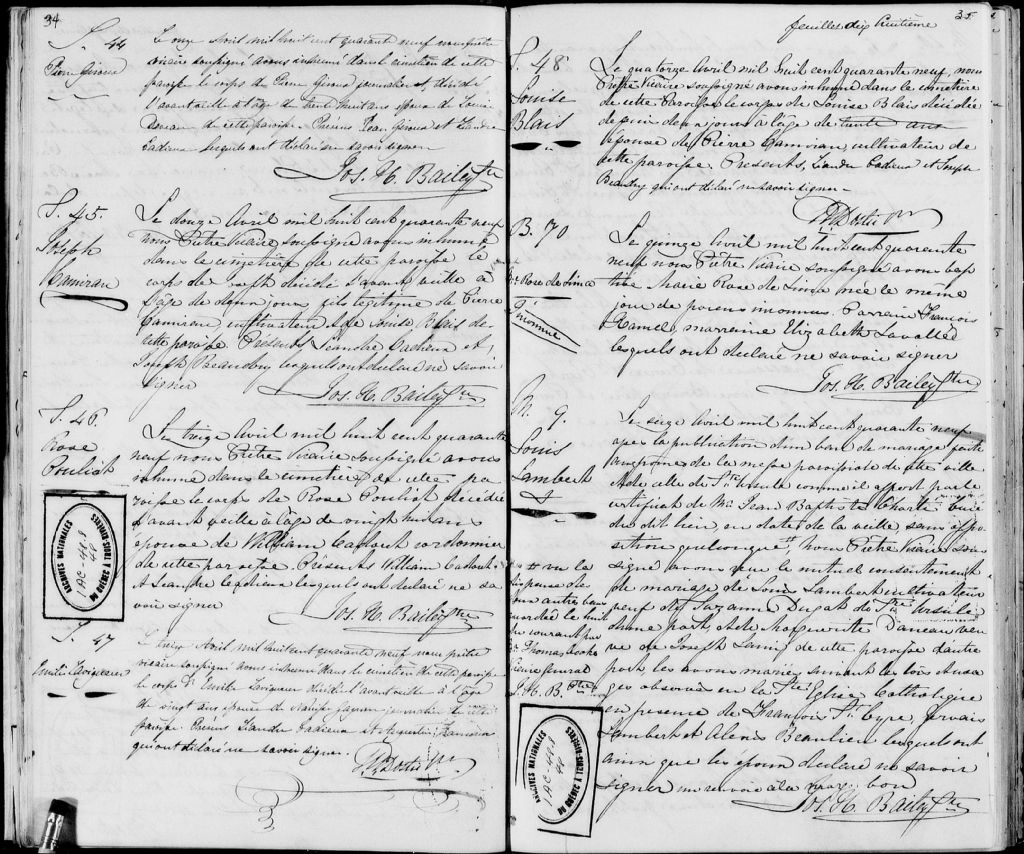 34
S. 44
Pierre Giroux
Le onze Avril mil huit cent quarante neuf nous prêtre
vicaire soussigné avons inhumé dans le cimetière de cette
paroisse le corps de Pierre Giroux journalier décédé
l'avant veille à l'âge de trente huit ans époux de Louise
de cette paroisse. Présens Jean Giroux et Leandre
Cadieux lesquels ont déclaré ne savoir signer
Jos. H. Bailey Ptre
S. 45.
Joseph
Camiran
Le douze Avril mil huit cent quarante neuf
nous Prêtre Vicaire soussigné avons inhumé
dans le cimetière de cette paroisse le
corps de Joseph décédé l'avant veille à
l'âge de deux jours fils légitime de Pierre
Camiran cultivateur & de Louise Blais de
cette paroisse. Présents Leandre Cadieux et
Joseph Beaudry lesquels ont déclaré ne savoir
signer
Jos. H. Bailey Ptre
S. 46.
Rose
Pouliot
Le treize Avril mil huit cent quarante
neuf nous Prêtre Vicaire soussigné avons
inhumé dans le cimetière de cette pa
roisse le corps de Rose Pouliot décédée
l'avant veille à l'âge de vingt huit ans
épouse de William cordonnier
de cette paroisse. Présents William
et Leandre Cadieux lesquels ont déclaré ne sa
voir signer
Jos. H. Bailey Ptre
ARCHIVES NATIONALES
DU QUÉBEC À TROIS-RIVIÈRES
S. 47
Emilie Lavigueur
Le treize Avril mil huit cent quarante neuf nous prêtre
vicaire soussigné avons inhumé dans le cimetière de cette paroisse
le corps d'Emilie Lavigueur décédée l'avant veille à l'âge
de vingt ans épouse de journalier de cette
paroisse. Présens Leandre Cadieux et Augustin
qui ont déclaré ne savoir signer.
35
feuillet dix huitième
S. 48
Louise
Blais
Le quatorze Avril mil huit cent quarante neuf, nous
Prêtre Vicaire soussigné avons inhumé dans le cimetière
de cette Paroisse le corps de Louise Blais décédée
depuis deux jours à l'âge de trente ans
épouse de Pierre Camiran, cultivateur de
cette paroisse. Presents, Leandre Cadieux et Joseph
Beaudry qui ont déclaré ne savoir signer
B. 70
M. Rose de Lima
Inconnue
Le quinze Avril mil huit cent quarante
neuf nous Prêtre Vicaire soussigné avons bap
tisé Marie Rose de Lima née le même
jour de parens inconnus. Parrain François
Hamel, marraine Elizabeth Lavallée
lesquels ont déclaré ne savoir signer
Jos. H. Bailey Ptre
M. 9.
Louis
Lambert
Le seize Avril mil huit cent quarante neuf
après la publication d'un ban de mariage faite
au prône de la messe paroissiale de cette ville
& de celle de Ste Ursule comme il appert par le
certificat de Mr. Jean Baptiste Curé
du dit lieu, en date de la veille sans oppo
sition quelconque # Nous Prêtre Vicaire sous
signé avons reçu le mutuel consentement
de mariage de Louis Lambert cultivateur
veuf de Suzanne Dugas de Ste Ursule
d'une part, & de Marguerite Daneau veu
ve de Joseph Lamy de cette paroisse d'autre
part, les avons mariés suivant les lois & usa
ges observés en la Ste Eglise Catholique
en presence de François St. Cyre, Gervais
Lambert et Alexis Beaulieu lesquels ont
ainsi que les époux declaré ne savoir
signer un renvoi à la marge bon
Jos. H. Bailey Ptre
# vu la
dispense de
un autre ban
accordée le huit
du courant par
Mr Thomas Cooke
Vicaire Général
J. H. B. Ptre
ARCHIVES NATIONALES
DU QUÉBEC À TROIS-RIVIÈRES